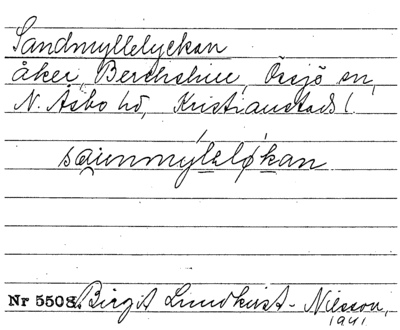 Sandmyllelyckan
åker, Berghshus, Össjö sn,
N. Åsbo hd, Kristianstads l.
saunmýlelǿkan
Nr 5508. Birgit Lundkvist-Nilsson,
1941